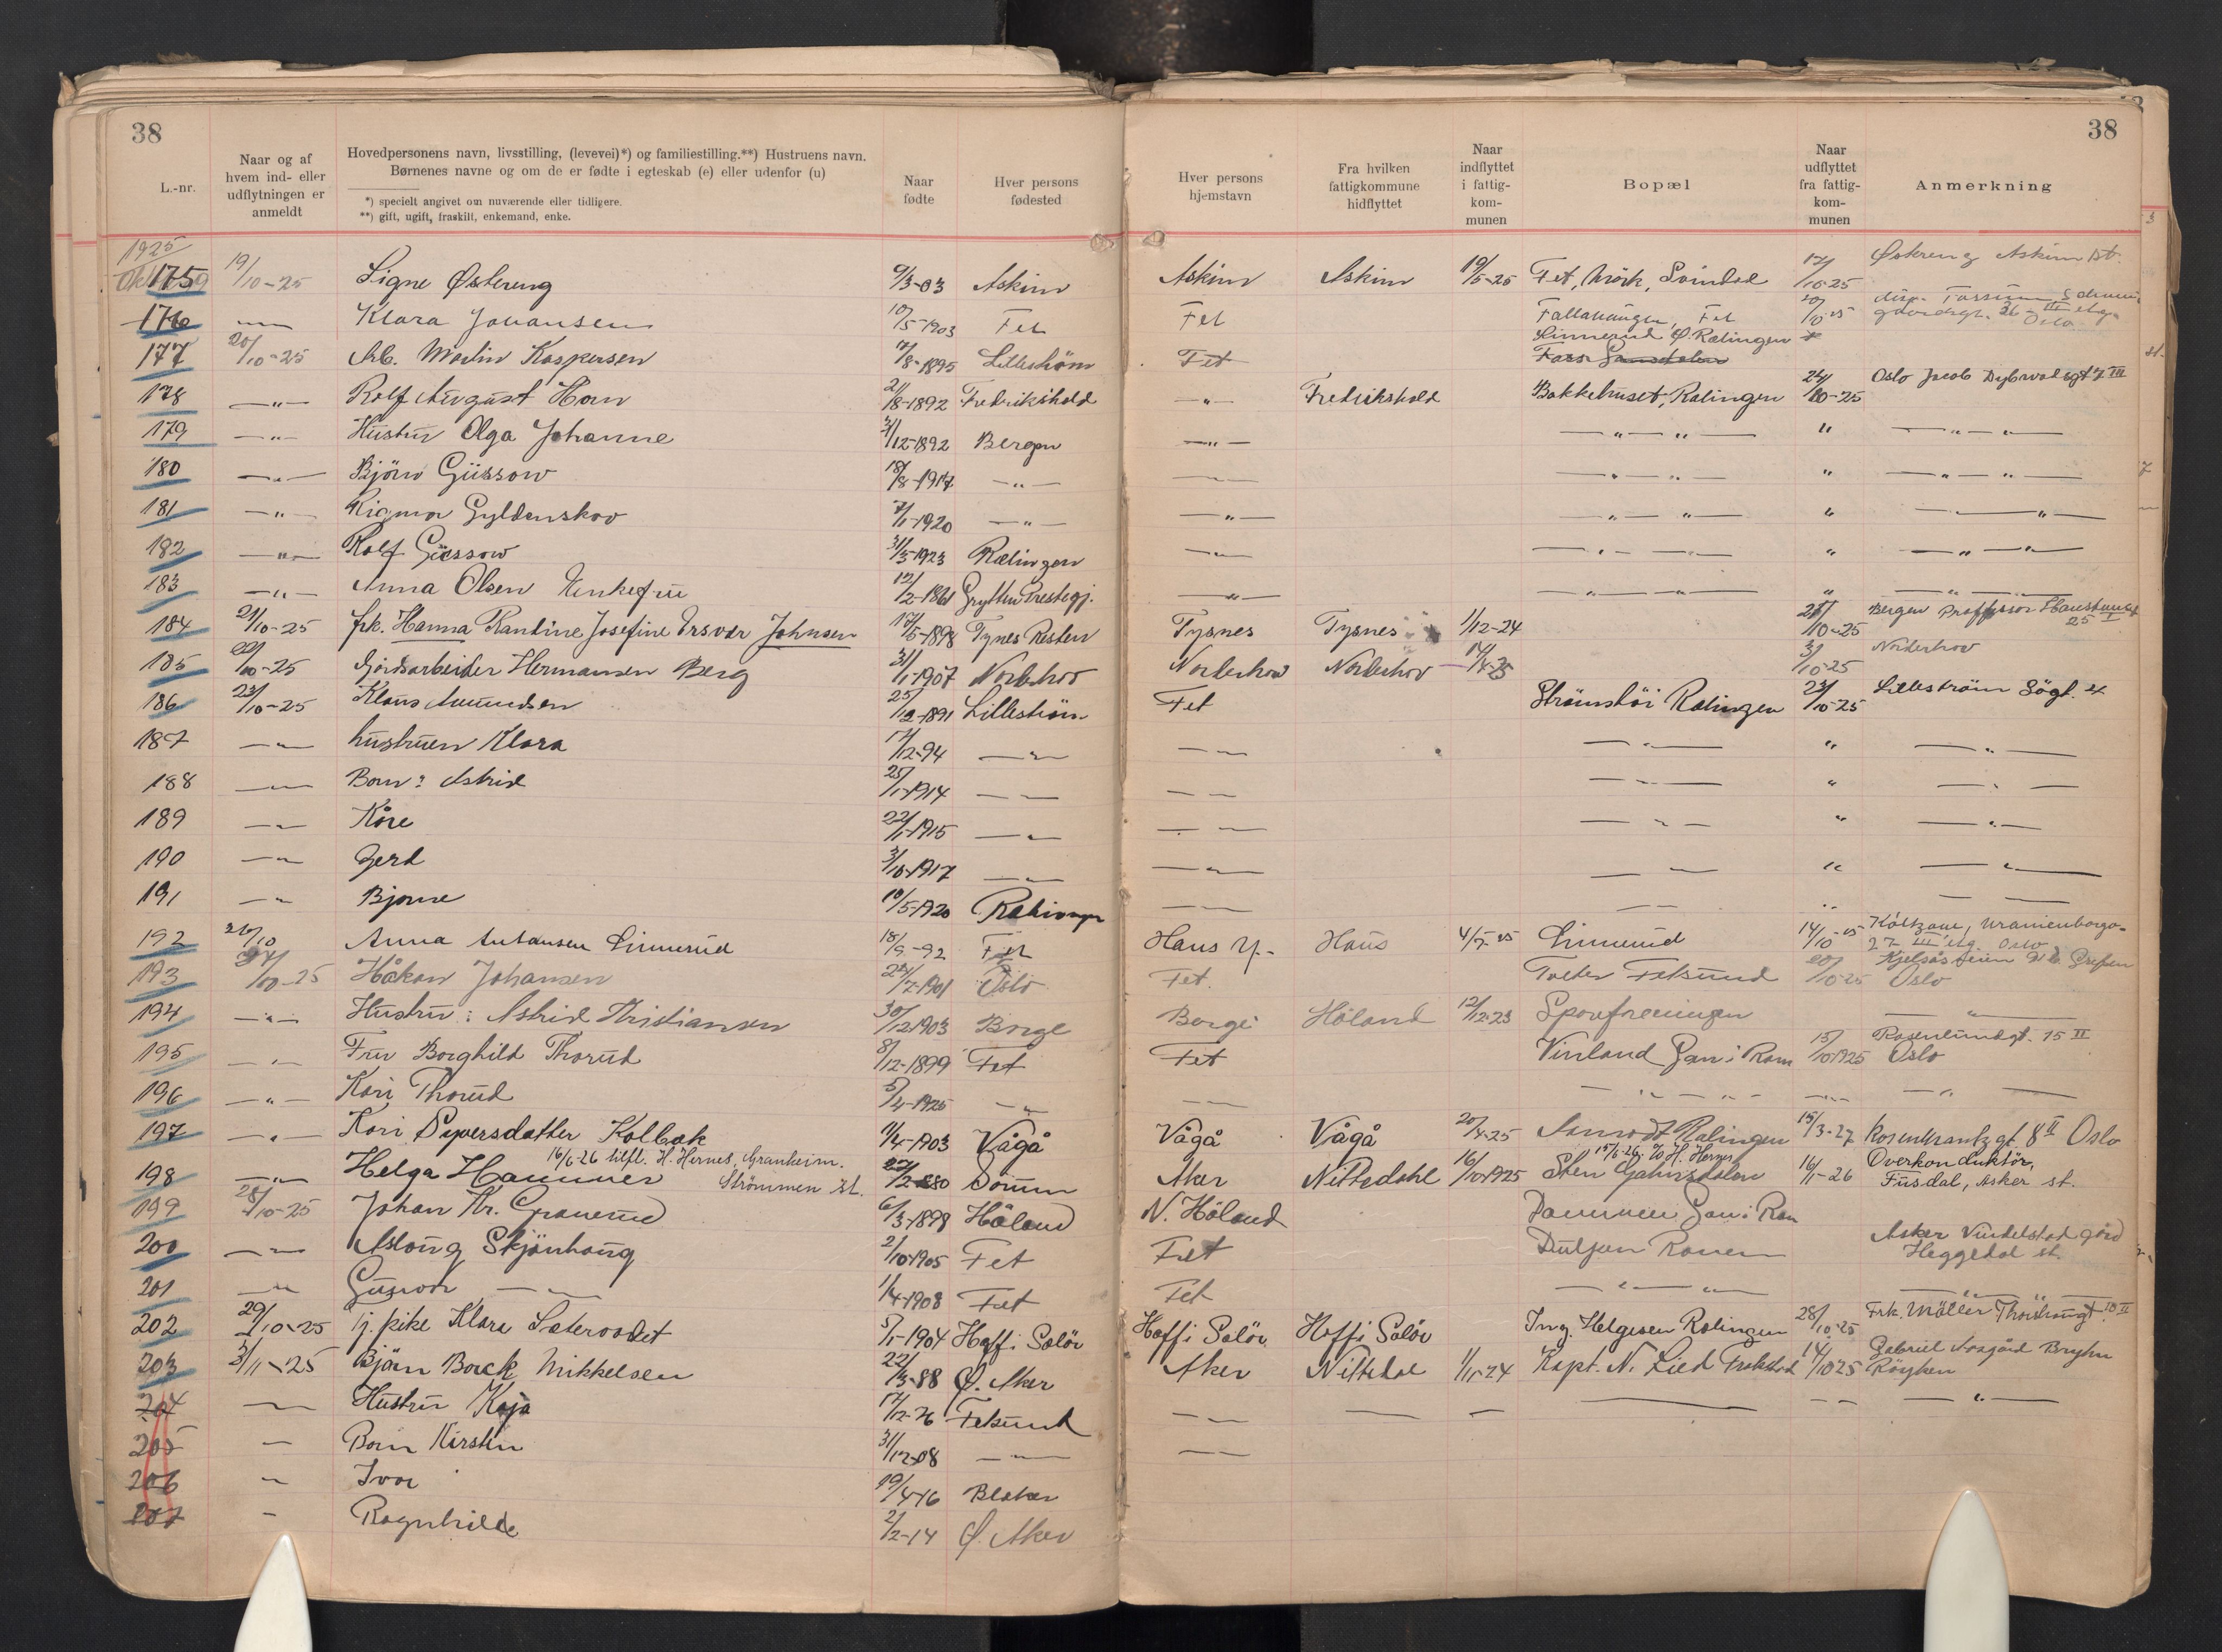 38
38
L.-nr.
Naar og af hvem ind- eller udflytningen er anmeldt
Hovedpersonens navn, livsstilling, (levevei)*) og familiestilling.**) Hustruens navn.
Børnenes navne og om de er fødte i egteskab (e) eller udenfor (u)
*) specielt angivet om nuværende eller tidligere.
**) gift, ugift, fraskilt, enkemand, enke.
Naar fødte
Hver persons fødested
Hver persons hjemstavn
Fra hvilken fattigkommune hidflyttet
Naar indflyttet i fattigkommunen
Bopæl
Naar udflyttet fra fattigkommunen
Anmerkning
1925
175 19/10-25 Signe Østereng 9/3-03 Askim Askim Askim 19/5-25 Fet, Mörk, Svindal 17/10-25 Østreng Askim st.
176 Klara Johansen 10/5-1903 Fet Fet Fallahaugen, Fet 20/10-25 Oslo
177 20/10-25 Arb. Martin Kaspersen 7/8-1895 Lilleström Fet Linnerud Ø. Rælingen
178 —"— Rolf August Horn 21/8-1892 Fredrikshald —"— Fredrikshald Bakkehuset, Rælingen 24/10-25 Oslo Jacob Dybwadsgt 7 III
179 —"— Hustru Olga Johanne 31/12-1892 Bergen —"— —"—"— " —"—"—
180 —"— Björn Güssow 18/8-1917 —"— —"— —"—"— " —"—"—
181 —"— Rigmor Gyldenskov 7/1-1920 —"— —"— —"—"— " —"—
182 —"— Rolf Güssow 31/5-1923 Rælingen —"— —"—"— " —"—"—
183 —"— Anna Olsen Enkefru 12/2-1861 Grytten Prestegj. —"— —"—"— " —"—"—
184 21/10-25 frk. Hanna Rantine Josefine Johnsen 17/5-1898 Tysnes Tysnes 1/12-24 28/10-25 Bergen Professor 25 I
185 22/10-25 Gårdsarbeider Hermansen Berg 31/1-1907 Norderhov Norderhov Norderhov 14/4-25 3/10-25 Norderhov
186 23/10-25 Klaus Amundsen 25/12-1891 Lilleström Fet Strömshöi Rælingen 23/10-25 Lilleström Sögt. 4
187 —"— hustruen Klara 17/12-94 —"— —"— —"— " —"—
188 —"— Barn: Astrid 25/1-1914 —"— —"— —"— " —"—
189 —"— Kåre 22/1-1915 —"— —"— —"— " —"—
190 —"— Gerd 3/10-1917 —"— —"— —"— " —"—
191 —"— Bjarne 10/5-1920 Rælingen —"— —"— " —"—
192 26/10 Anna Antansen Linnerud 18/9-92 Fet Hans Haus 4/7-25 Linnerud 14/10-25 Uranienborgv. 27 III etg. Oslo
193 27/10-25 Håkon Johansen 24/7-1901 Oslo Fet. Tveter Fetsund 20/10-25 Kjelsåsveien Grefsen Oslo
194 —"— Hustru: Astrid Kristiansen 30/12-1903 Borge Borge Höland 12/12-23 Spareforeningen —"—
195 —"— Fru Borghild Thorud 8/12-1899 Fet Fet Vinland Gan i Ram 15/10 1925 Rosenlundgt. 15 II Oslo
196 —"— Kari Thorud 5/4-1925 —"— —"— —"—"— —"— —"—
197 —"— Kari Syversdatter Kolbak 11/4-1903 Vågå Vågå Vågå 20/4-25 Rælingen 15/3-27 Rosenkrantzgt 8 II Oslo
16/6-26 tilfl. H. Hernes, Granheim. Strömmen st.
198 —"— Helga Hammer 22/2-1880 Aker Nittedahl 16/10 1925 Sten 16/1-26 Overkonduktör, Fusdal, Asker st.
199 28/10-25 Johan Kr. Granerud 6/3-1898 Höland N. Höland Gan i Ram
200 —"— Aslaug Skjönhaug 2/10-1905 Fet Fet Asker Vindelstad gård Heggedal st.
201 —"— Gunvor —"— 1/4-1908 Fet Fet —"—"— —"—"—
202 29/10-25 Tj. pike Klara Sæteroodet 5/1-1904 Hof i Solör Hof i Solör Hof i Solör Ing. Helgesen Rælingen 28/10-25 Frk. Möller 10 II
203 3/11-25 Björn Borck Mikkelsen 22/3-88 Ø. Aker Aker Nittedal 1/11-24 Kapt. N. Lied 14/10 25 Gabriel Aasgård Bryhn Röyken
204 —"— Hustru Kaja 17/12-26 Fetsund —"— — — — —"— —"—
205 — Barn Kirsten 31/12-08 —"— —"—
206 " Ivar 19/4-16 Blaker
207 " Ragnhilde 2/2-14 Ø. Aker